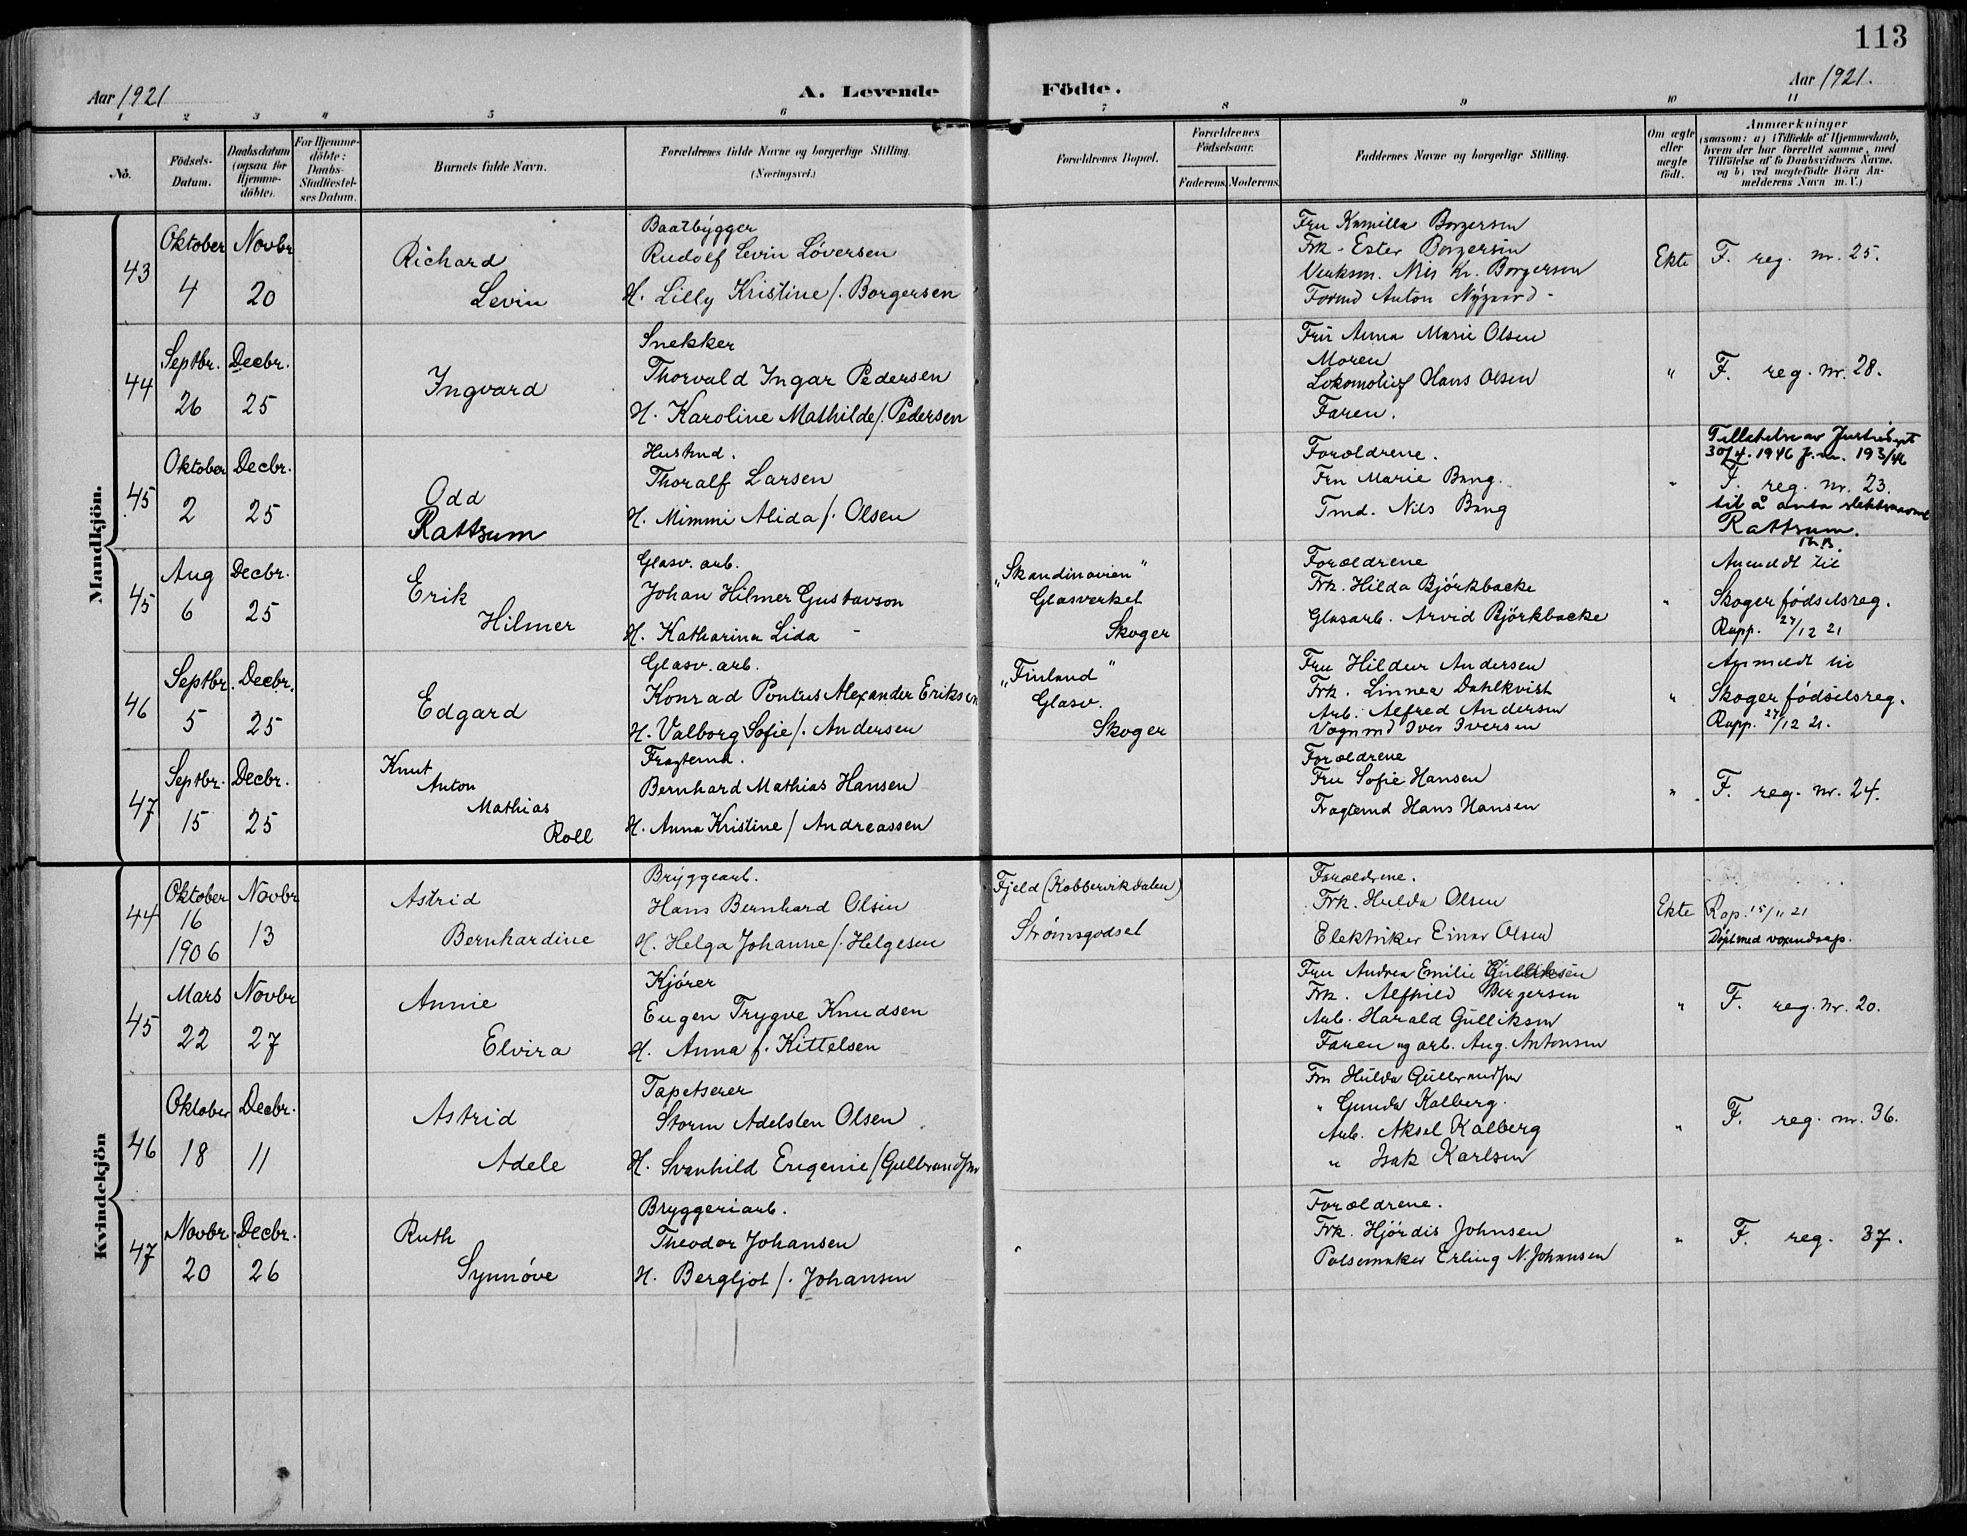 113
Aar 1921
A. Levende Födte.
Aar 1921.
1 2 3 4 5 6 7 8 9 10 11
No.
Födsels-Datum.
Daabsdatum (ogsaa for Hjemme-döbte).
For Hjemme-döbte: Daabs-Stadfæstel-ses Datum.
Barnets fulde Navn.
Forældrenes fulde Navne og borgerlige Stilling. (Næringsvei.)
Forældrenes Bopæl.
Forældrenes Födselsaar.
Faderens. Moderens.
Faddernes Navne og borgerlige Stilling.
Om ægte eller uægte födt.
Anmærkninger
(saasom: a) i Tilfælde af Hjemmedaab, hvem der har forrettet samme, med Tilföielse af to Daabsvidners Navne, og b) ved uægtefödte Börn An-melderens Navn m. V.)
Mandkjön.
43
Oktober 4
Novbr 20
Richard
Levin
Baatbygger
Rudolf Levin Löversen
H. Lilly Kristine f. Borgersen
Fru Kamilla Borgersen
Frk. Ester Borgersen
Verksm. Nils Kr. Borgersen
Formd Anton Nygaard
Ekte
F. reg. nr. 25.
44
Septbr. 26
Decbr. 25
Ingvard
Snekker
Thorvald Ingar Pedersen
H. Karoline Mathilde f. Pedersen
Fru Anna Marie Olsen
Moren
Lokomotivf Hans Olsen
Faren.
"
F. reg. nr. 28.
45
Oktober 2
Decbr. 25
Odd
Rattsum
Thoralf Larsen
H. Mimmi Alida f. Olsen
Foroeldrene.
Fru Marie Bang.
Tmd. Nils Bang
"
Tillatelse av Justisdept
30/4. 1946 J. nr. 193/46
F. reg. nr. 23.
til å anta slektsnavnet
Rattsum.
45
Aug 6
Decbr. 25
Erik
Hilmer
Glasv. arb.
Johan Hilmer Gustavson
H. Katharina Lida
"Skandinavien"
Glasverket
Skoger
Foroeldrene
Frk. Hilda Björkbacke
Glasarb. Arvid Björkbacke
"
Anmeldt til
Skoger födselsreg.
Rapp. 27/12 21
46
Septbr. 5
Decbr. 25
Edgard
Glasv. arb.
Konrad Pontus Alexander Eriksen
H. Valborg Sofie f. Andersen
"Finland"
Glasv.
Skoger
Fru Hildur Andersen
Frk. Linnea Dahlkvist
Arb. Alfred Andersen
Vognmd Iver Iversen
"
Anmeldt til
Skoger födselsreg.
Rapp. 27/12 21.
47
Septbr. 15
Decbr. 25
Knut
Anton
Mathias
Roll
Fragtemd.
Bernhard Mathias Hansen
H. Anna Kristine f. Andreassen
Foroeldrene
Fru Sofie Hansen
Fragtemd Hans Hansen
"
F. reg. nr. 24.
Kvindekjön
44
Oktober 16 1906
Novbr 13
Astrid
Bernhardine
Bryggearb.
Hans Bernhard Olsen
H. Helga Johanne f. Helgesen
Fjeld (Kobbervikdalen)
Strömsgodset
Foroeldrene.
Frk. Hulda Olsen
Elektriker Einar Olsen
Ekte
Rap. 15/11 21
45
Mars 22
Novbr 27
Annie
Elvira
Kjörer
Eugen Trygve Knudsen
H. Anna f. Kittelsen
Fru Andrea Emilie Gulliksen
Frk. Alfhild Birgersen
Arb. Harald Gulliksen
Faren og arb. Aug. Antonsen
"
F. reg. nr. 20.
46
Oktober 18
Decbr. 11
Astrid
Adele
Tapetserer
Storm Adelsten Olsen
H. Svanhild Eugenie f. Gulbrandsen
Fru Hulda Gulbrandsen
" Gunda Kalberg.
Arb. Aksel Kalberg
" Isak Karlsen
"
F. reg. nr. 36.
47
Novbr. 20
Decbr. 26
Ruth
Synnöve
Bryggeriarb.
Theodor Johansen
H. Bergljot f. Johansen
Foroeldrene.
Frk. Hjördis Johnsen
Pölsemaker Erling N. Johansen
"
F. reg. 37.